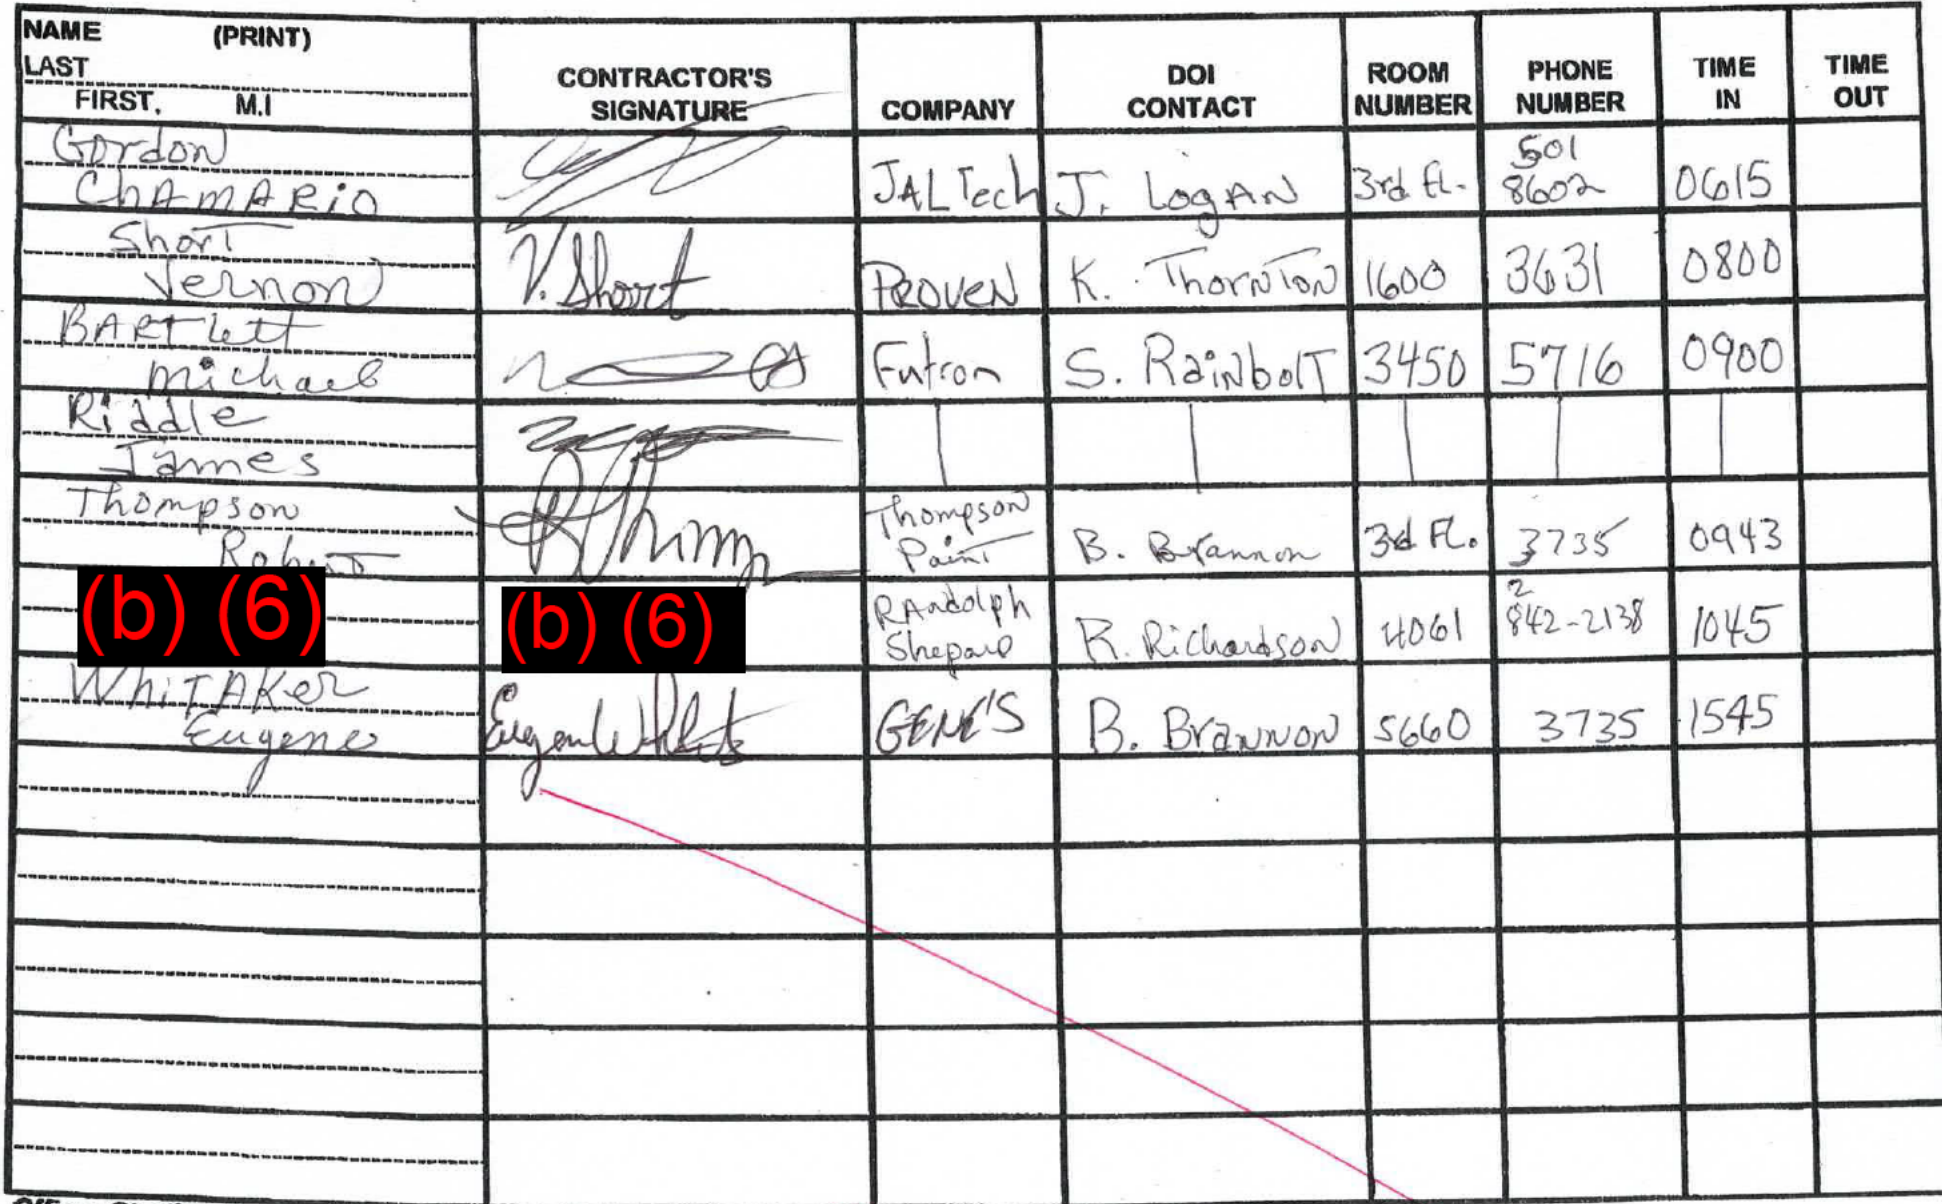 NAME (PRINT)
LAST
FIRST, M.I
CONTRACTOR'S
SIGNATURE
COMPANY
DOI
CONTACT
ROOM
NUMBER
PHONE
NUMBER
TIME
IN
TIME
OUT
Gordon
ChAMARio
JALTech
J. LogAN
3rd FL.
501
8602
0615
Short
Vernon
V. Short
PROVEN
K. ThornTon
1600
3631
0800
BARTlett
Michael
Futron
S. RainbolT
3450
5716
0900
Riddle
James
Thompson
Robert
Thompson
Paint
B. Brannon
3rd FL.
3735
0943
(b) (6)
(b) (6)
RAndolph
Shepard
R. Richardson
4061
2
842-2138
1045
WhiTAKer
Eugene
GENE'S
B. BraNNON
5660
3735
1545